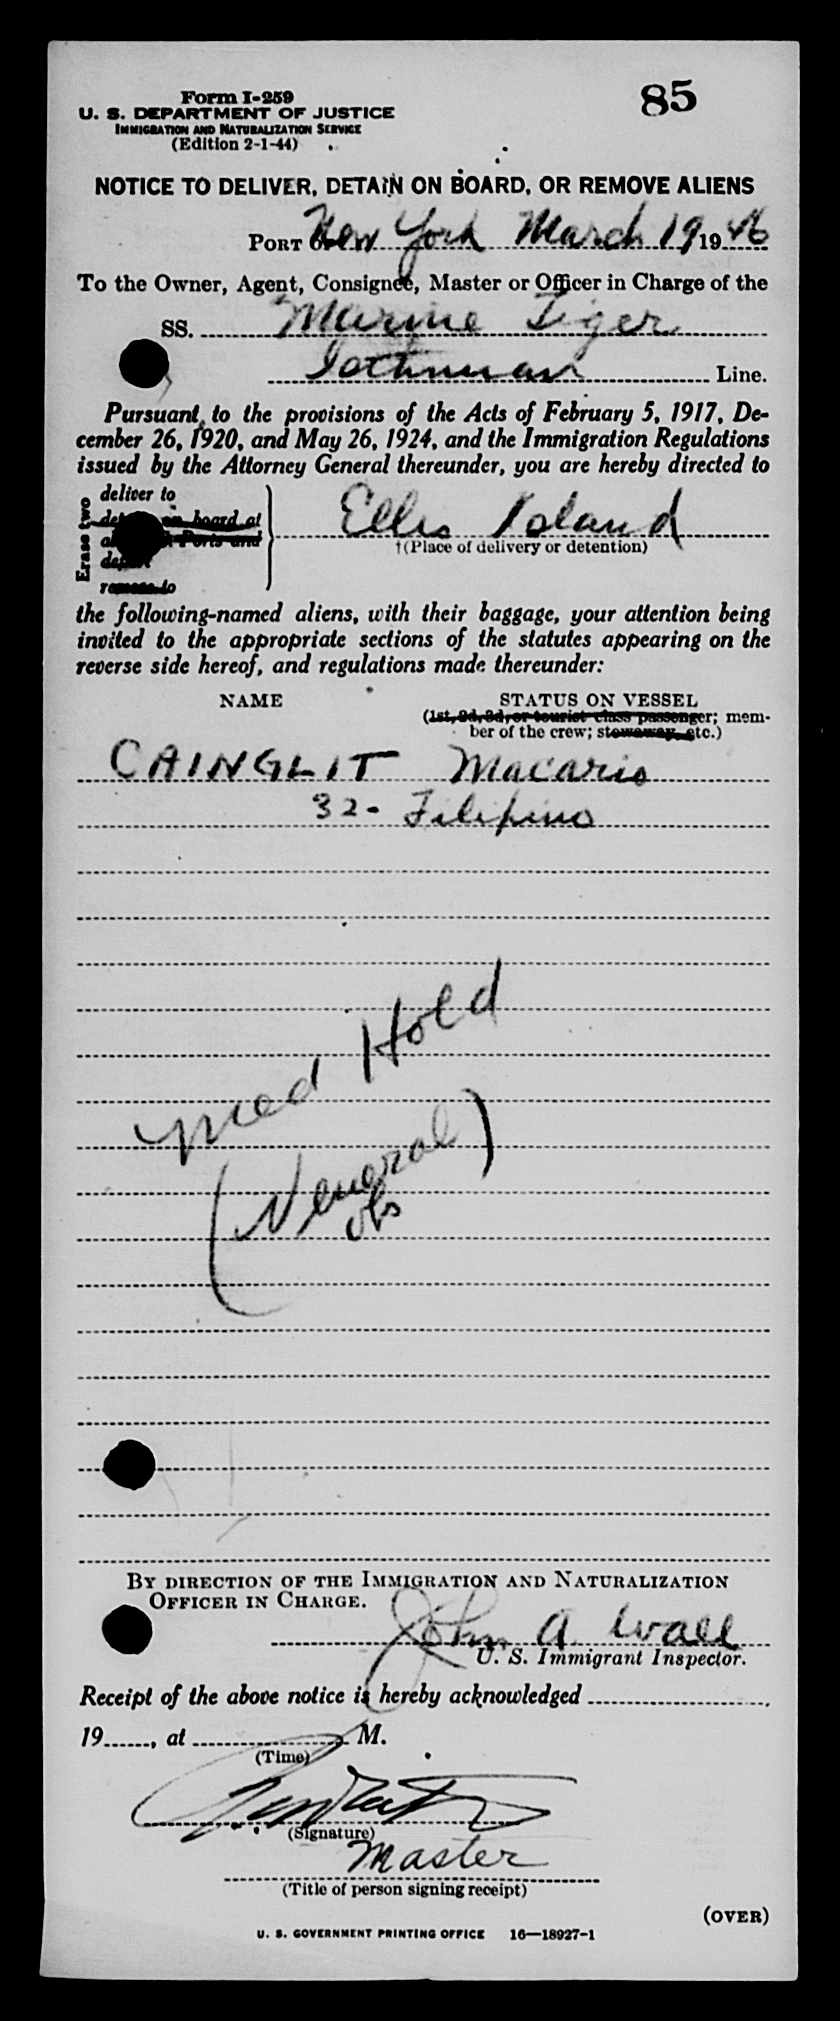 85
Form I-259
U. S. DEPARTMENT OF JUSTICE
IMMIGRATION AND NATURALIZATION SERVICE
(Edition 2-1-44)
NOTICE TO DELIVER, DETAIN ON BOARD, OR REMOVE ALIENS
PORT OF New York March 19 1946
To the Owner, Agent, Consignee, Master or Officer in Charge of the
SS. Marine Tiger
Isthmian Line.
Pursuant to the provisions of the Acts of February 5, 1917, De-
cember 26, 1920, and May 26, 1924, and the Immigration Regulations
issued by the Attorney General thereunder, you are hereby directed to
Erase two
deliver to
on board at
Ports and
remove to
Ellis Island
†(Place of delivery or detention)
the following-named aliens, with their baggage, your attention being
invited to the appropriate sections of the statutes appearing on the
reverse side hereof, and regulations made thereunder:
NAME STATUS ON VESSEL
(1st, 2d, 3d, or tourist class passenger; mem-
ber of the crew; stowaway, etc.)
CAINGLIT Macario
32- Filipino
Med Hold
(Veneral)
obs
BY DIRECTION OF THE IMMIGRATION AND NATURALIZATION
OFFICER IN CHARGE.
John A. Wall
U. S. Immigrant Inspector.
Receipt of the above notice is hereby acknowledged
19, at M.
(Time)
(Signature)
Master
(Title of person signing receipt)
(OVER)
U. S. GOVERNMENT PRINTING OFFICE 16—18927-1